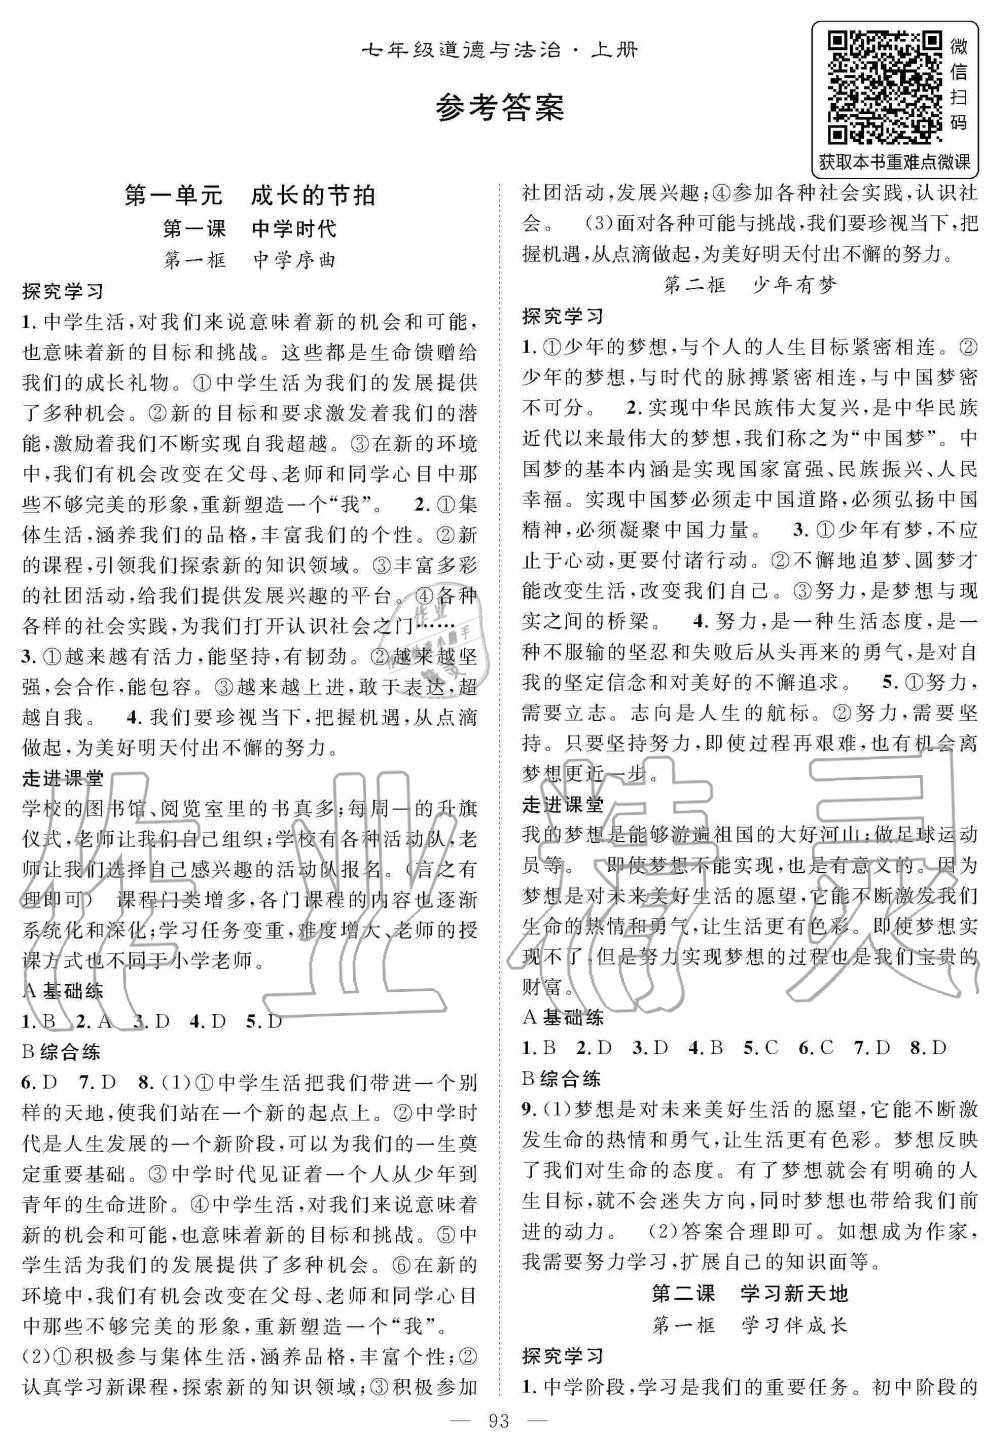 七年级道德与法治·上册
微信扫码
获取本书重难点微课
参考答案
第一单元 成长的节拍
第一课 中学时代
第一框 中学序曲
探究学习
1. 中学生活,对我们来说意味着新的机会和可能,
也意味着新的目标和挑战。这些都是生命馈赠给
我们的成长礼物。①中学生活为我们的发展提供
了多种机会。②新的目标和要求激发着我们的潜
能,激励着我们不断实现自我超越。③在新的环境
中,我们有机会改变在父母、老师和同学心目中那
些不够完美的形象,重新塑造一个“我”。 2. ①集
体生活,涵养我们的品格,丰富我们的个性。②新
的课程,引领我们探索新的知识领域。③丰富多彩
的社团活动,给我们提供发展兴趣的平台。④各种
各样的社会实践,为我们打开认识社会之门……
3. ①越来越有活力,能坚持,有韧劲。②越来越坚
强,会合作,能包容。③越来越上进,敢于表达,超
越自我。 4. 我们要珍视当下,把握机遇,从点滴
做起,为美好明天付出不懈的努力。
走进课堂
学校的图书馆、阅览室里的书真多;每周一的升旗
仪式,老师让我们自己组织;学校有各种活动队,老
师让我们选择自己感兴趣的活动队报名。(言之有
理即可) 课程门类增多,各门课程的内容也逐渐
系统化和深化;学习任务变重,难度增大、老师的授
课方式也不同于小学老师。
A 基础练
1. B 2. A 3. D 4. D 5. D
B 综合练
6. D 7. D 8. (1)①中学生活把我们带进一个别
样的天地,使我们站在一个新的起点上。②中学时
代是人生发展的一个新阶段,可以为我们的一生奠
定重要基础。③中学时代见证着一个人从少年到
青年的生命进阶。④中学生活,对我们来说意味着
新的机会和可能,也意味着新的目标和挑战。⑤中
学生活为我们的发展提供了多种机会。⑥在新的
环境中,我们有机会改变在父母、老师和同学心目
中那些不够完美的形象,重新塑造一个“我”。
(2)①积极参与集体生活,涵养品格,丰富个性;②
认真学习新课程,探索新的知识领域;③积极参加
社团活动,发展兴趣;④参加各种社会实践,认识社
会。 (3)面对各种可能与挑战,我们要珍视当下,把
握机遇,从点滴做起,为美好明天付出不懈的努力。
第二框 少年有梦
探究学习
1. ①少年的梦想,与个人的人生目标紧密相连。②
少年的梦想,与时代的脉搏紧密相连,与中国梦密
不可分。 2. 实现中华民族伟大复兴,是中华民族
近代以来最伟大的梦想,我们称之为“中国梦”。中
国梦的基本内涵是实现国家富强、民族振兴、人民
幸福。实现中国梦必须走中国道路,必须弘扬中国
精神,必须凝聚中国力量。 3. ①少年有梦,不应
止于心动,更要付诸行动。②不懈地追梦、圆梦才
能改变生活,改变我们自己。③努力,是梦想与现
实之间的桥梁。 4. 努力,是一种生活态度,是一
种不服输的坚忍和失败后从头再来的勇气,是对自
我的坚定信念和对美好的不懈追求。 5. ①努力,
需要立志。志向是人生的航标。②努力,需要坚
持。只要坚持努力,即使过程再艰难,也有机会离
梦想更近一步。
走进课堂
我的梦想是能够游遍祖国的大好河山;做足球运动
员等。 即使梦想不能实现,也是有意义的。因为
梦想是对未来美好生活的愿望,它能不断激发我们
生命的热情和勇气,让生活更有色彩。即使梦想实
现不了,但是努力实现梦想的过程也是我们宝贵的
财富。
A 基础练
1. B 2. D 3. D 4. B 5. C 6. C 7. D 8. D
B 综合练
9. (1)梦想是对未来美好生活的愿望,它能不断激
发生命的热情和勇气,让生活更有色彩。梦想反映
了我们对生命的态度。有了梦想就会有明确的人
生目标,就不会迷失方向,同时梦想也带给我们前
进的动力。 (2)答案合理即可。如想成为作家,
我需要努力学习,扩展自己的知识面等。
第二课 学习新天地
第一框 学习伴成长
探究学习
1. 中学阶段,学习是我们的重要任务。初中阶段的
— 93 —
作业精灵